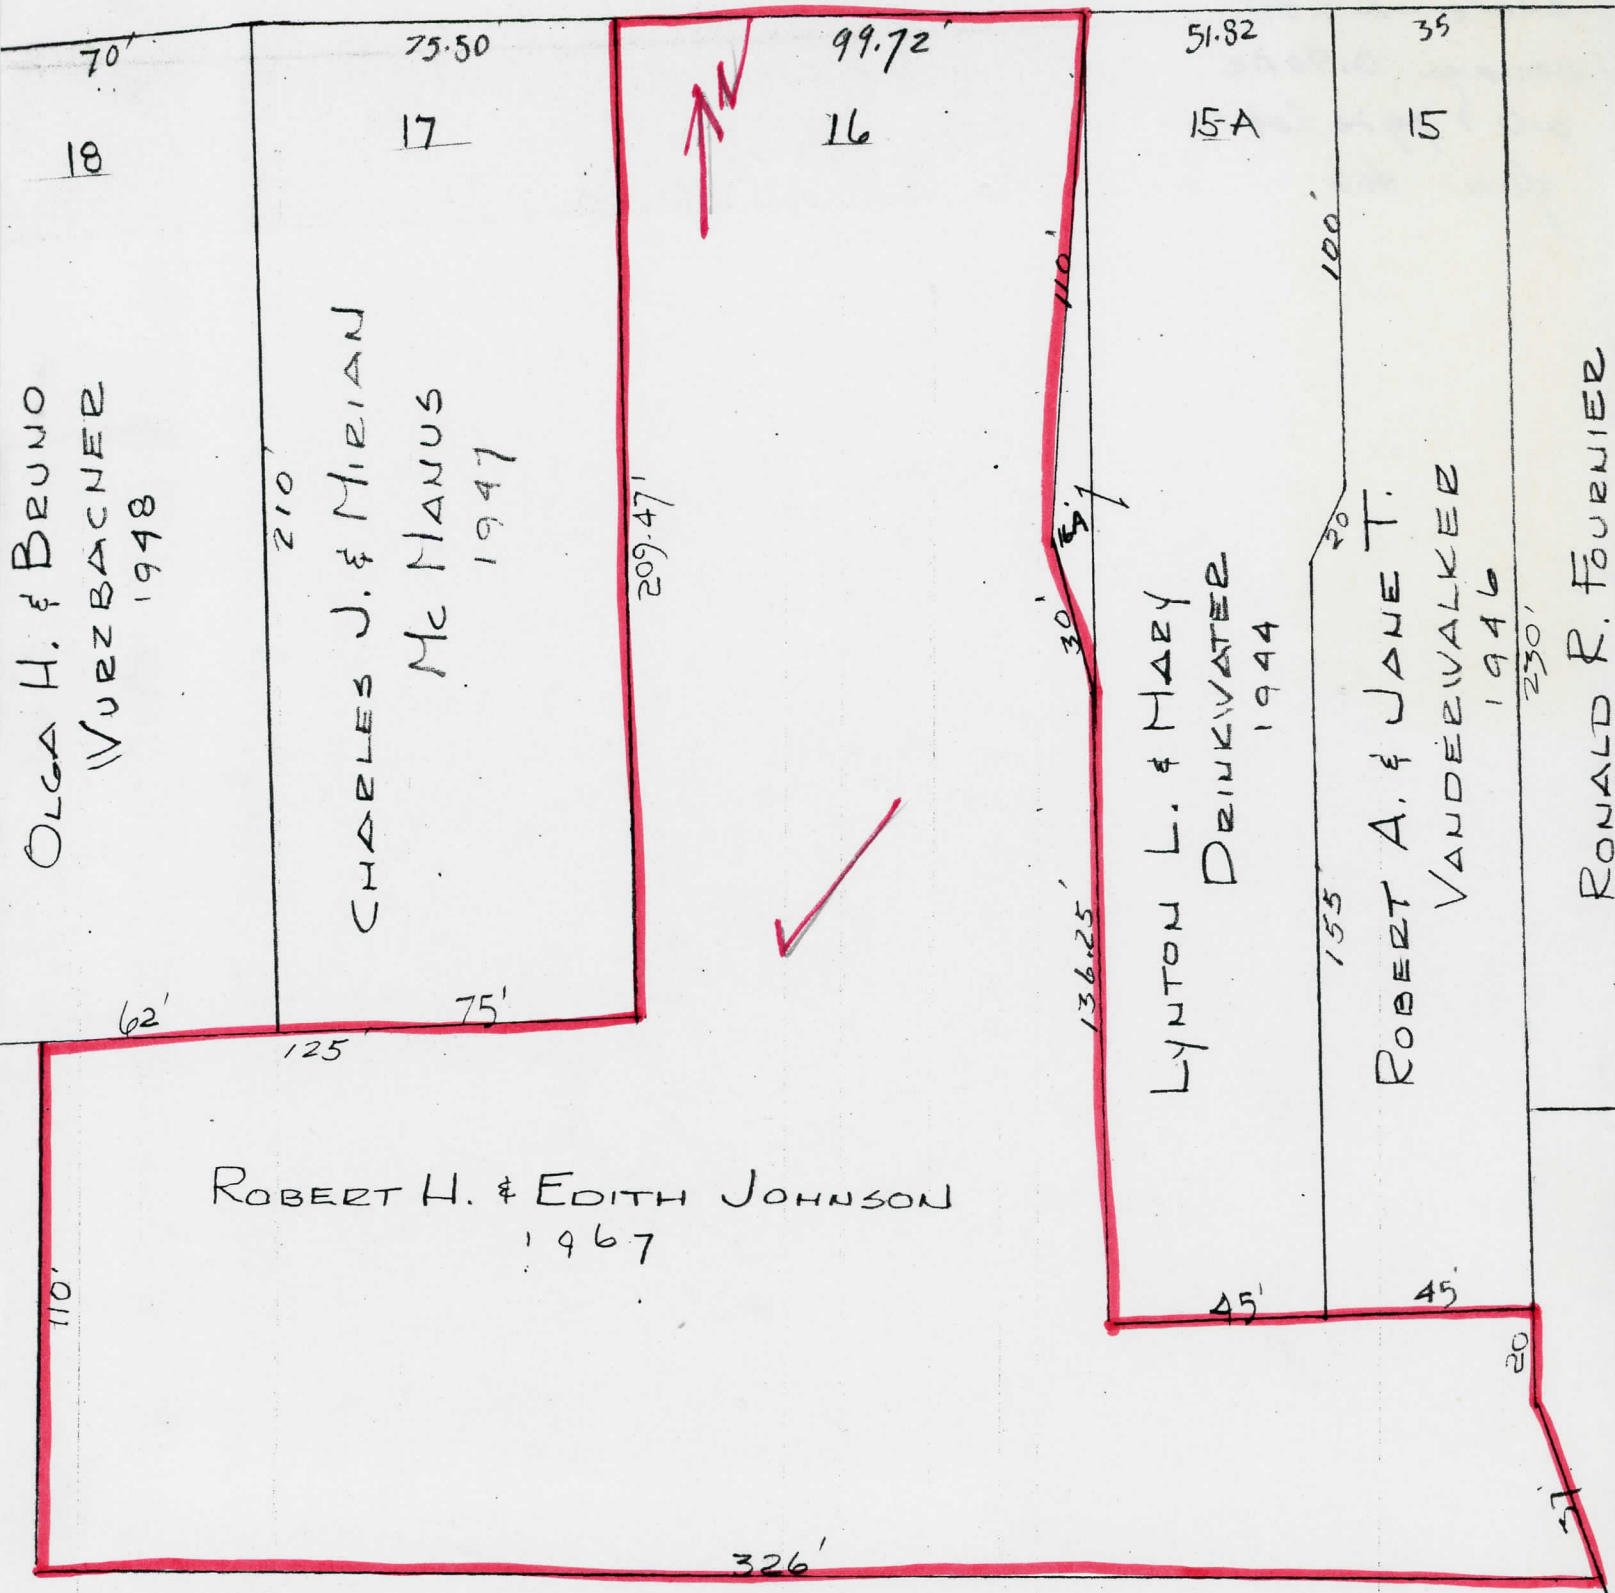 70'
75.50
99.72'
51.82
35
18
17
16
15-A
15
N
OLGA H. & BRUNO
WURZBACNER
1948
210'
CHARLES J. & MIRIAN
Mc MANUS
1947
209.47'
110'
30'
136.25'
LYNTON L. & MARY
DRINKWATER
1944
100'
20'
155'
ROBERT A. & JANE T.
VANDERWALKER
1946
230'
RONALD R. FOURNIER
62'
75'
125
ROBERT H. & EDITH JOHNSON
1967
110'
45'
45'
20
326'